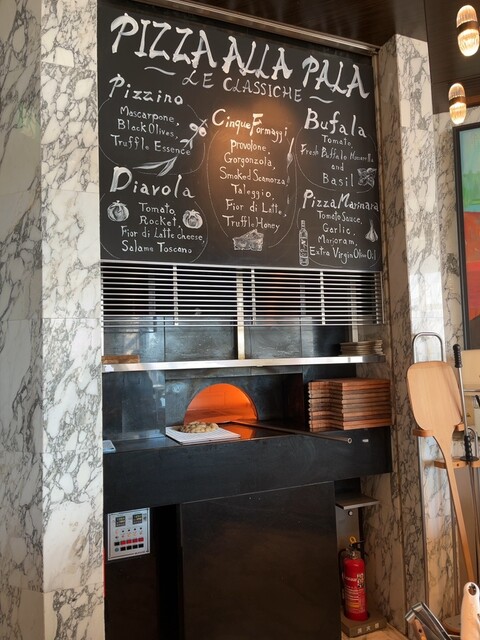 PIZZA ALLA PALA
LE CLASSICHE
Pizzino
Mascarpone,
Black Olives,
Truffle Essence
Diavola
Tomato,
Rocket,
Fior di Latte cheese,
Salame Toscano
Cinque Formaggi
Provolone,
Gorgonzola,
Smoked Scamorza,
Taleggio,
Fior di Latte,
Truffle Honey
Bufala
Tomato,
Fresh Buffalo Mozzarella
and
Basil
Pizza Marinara
Tomato Sauce,
Garlic,
Marjoram,
Extra Virgin Olive Oil